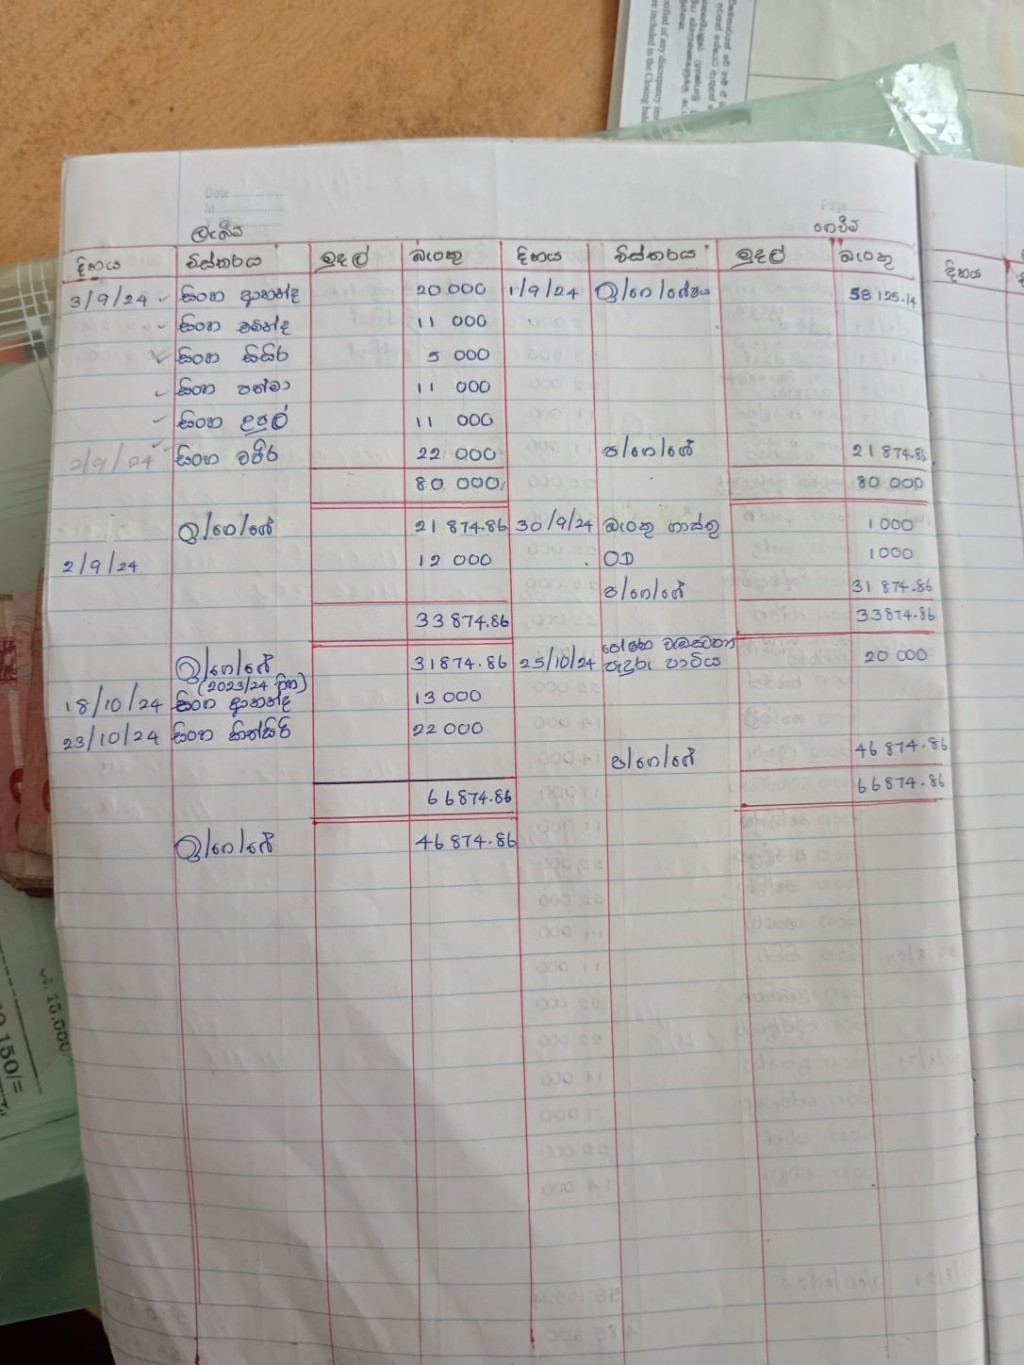 Date
M
Page
ලැබීම් ගෙවීම්
දිනය විස්තරය මුදල් බැංකු දිනය විස්තරය මුදල් බැංකු දිනය
3/9/24 සිංහ ආනන්ද 20 000 1/9/24 ඉ/ගෙ/ශේෂය 58 125.14
සිංහ චමින්ද 11 000
සිංහ සිසිර 5 000
සිංහ පත්මා 11 000
සිංහ උපුල් 11 000
2/9/24 සිංහ වජිර 22 000 ප/ගෙ/ශේ 21 874.86
80 000. 80 000
ඉ/ගෙ/ශේ 21 874.86 30/9/24 බැංකු ගාස්තු 1 000
2/9/24 12 000 OD 1000
ප/ගෙ/ශේ 31 874.86
33 874.86 33874.86
ඉ/ගෙ/ශේ 31874.86 25/10/24 පැදුරු පාටිය 20 000
(2023/24 හිඟ)
18/10/24 සිංහ ආනන්ද 13 000
23/10/24 සිංහ කිත්සිරි 22 000
ප/ගෙ/ශේ 46 874.86
66874.86 66874.86
ඉ/ගෙ/ශේ 46 874.86
15.000
150/=